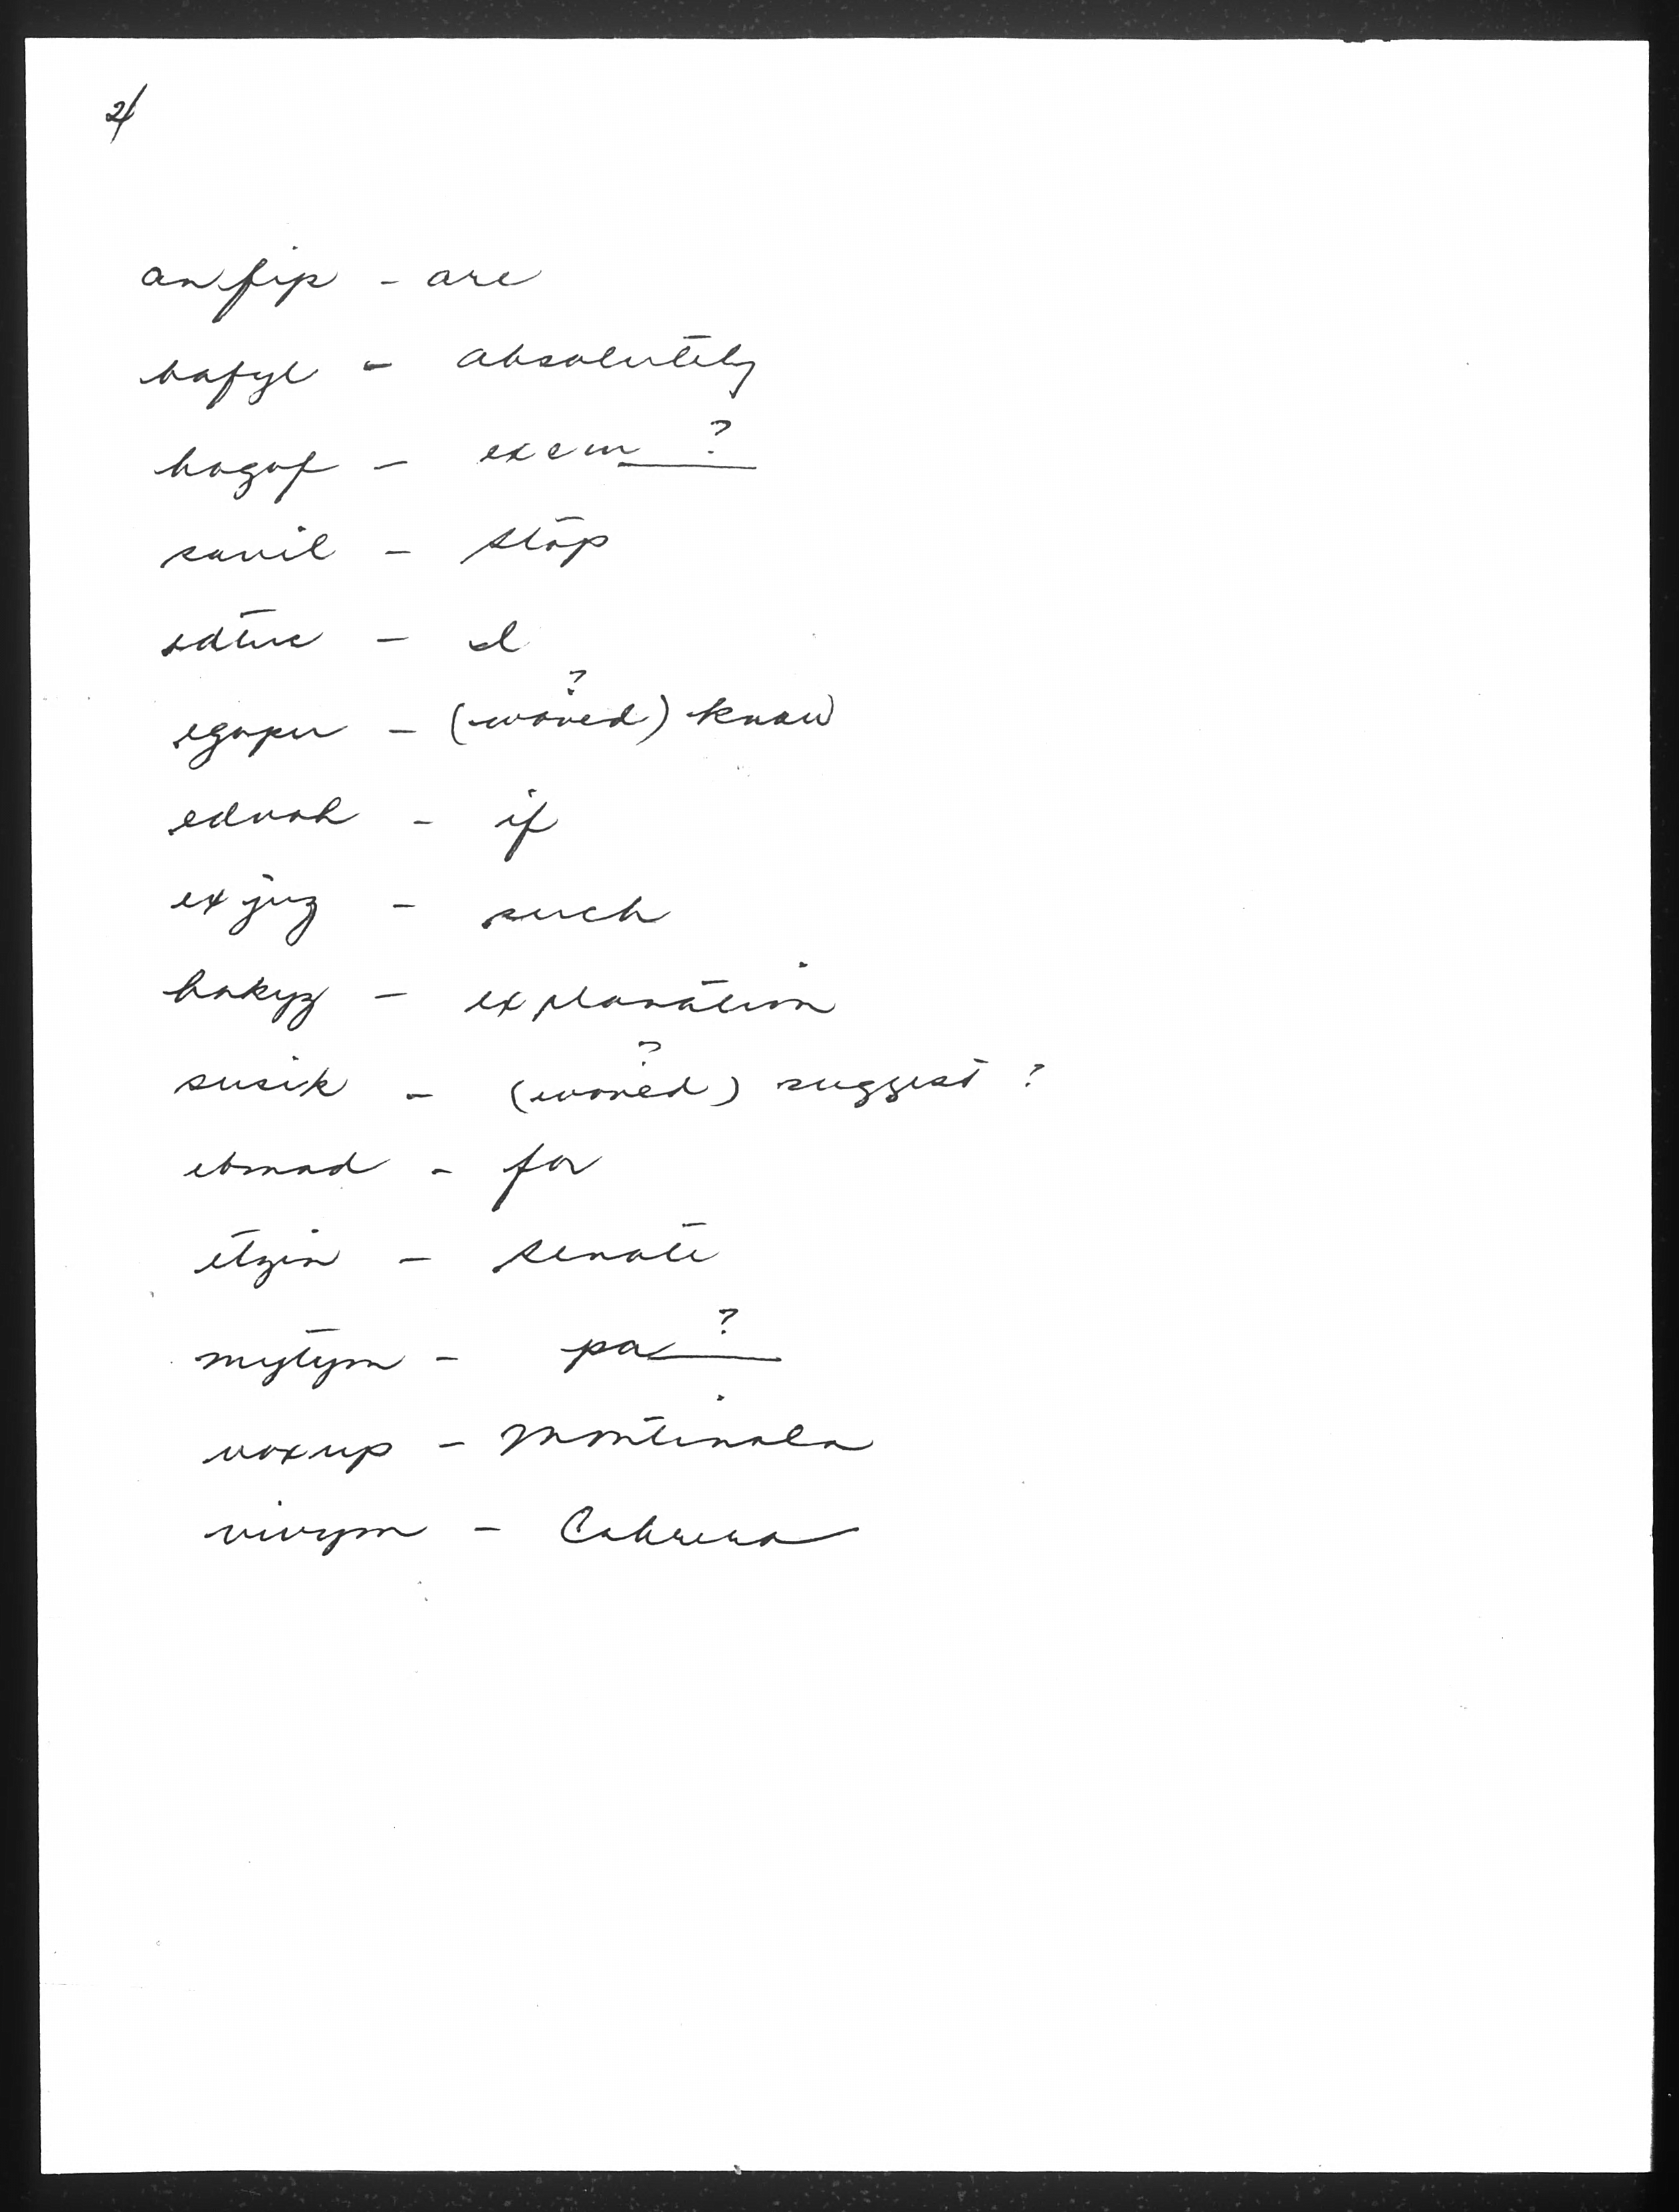 2/
anfip - are
bafyl - absolutely
hogof - excm ?
sanil - stop
edtuc - I
?
egopu - (world) know
ednoh - if
exjuz - such
hokyz - explanation
?
susik - (world) suggest ?
ebmad - for
etzin - senate
mytym - pa ?
voxup - Montinola
vivym - Cabrera